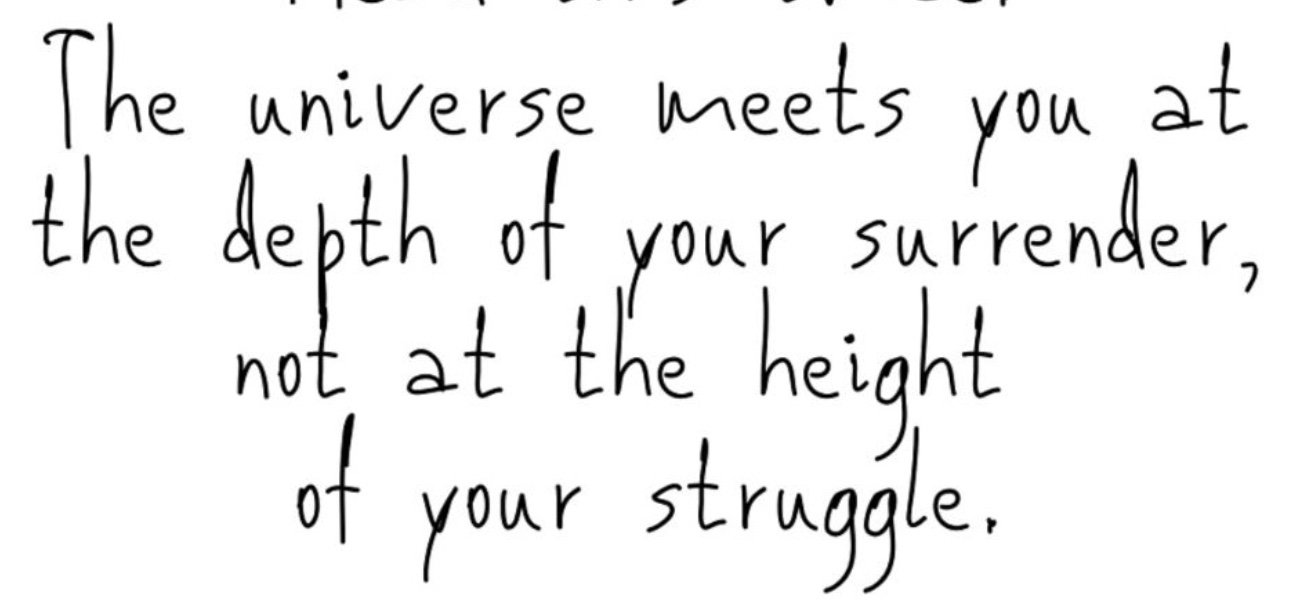 The universe meets you at
the depth of your surrender,
not at the height
of your struggle.